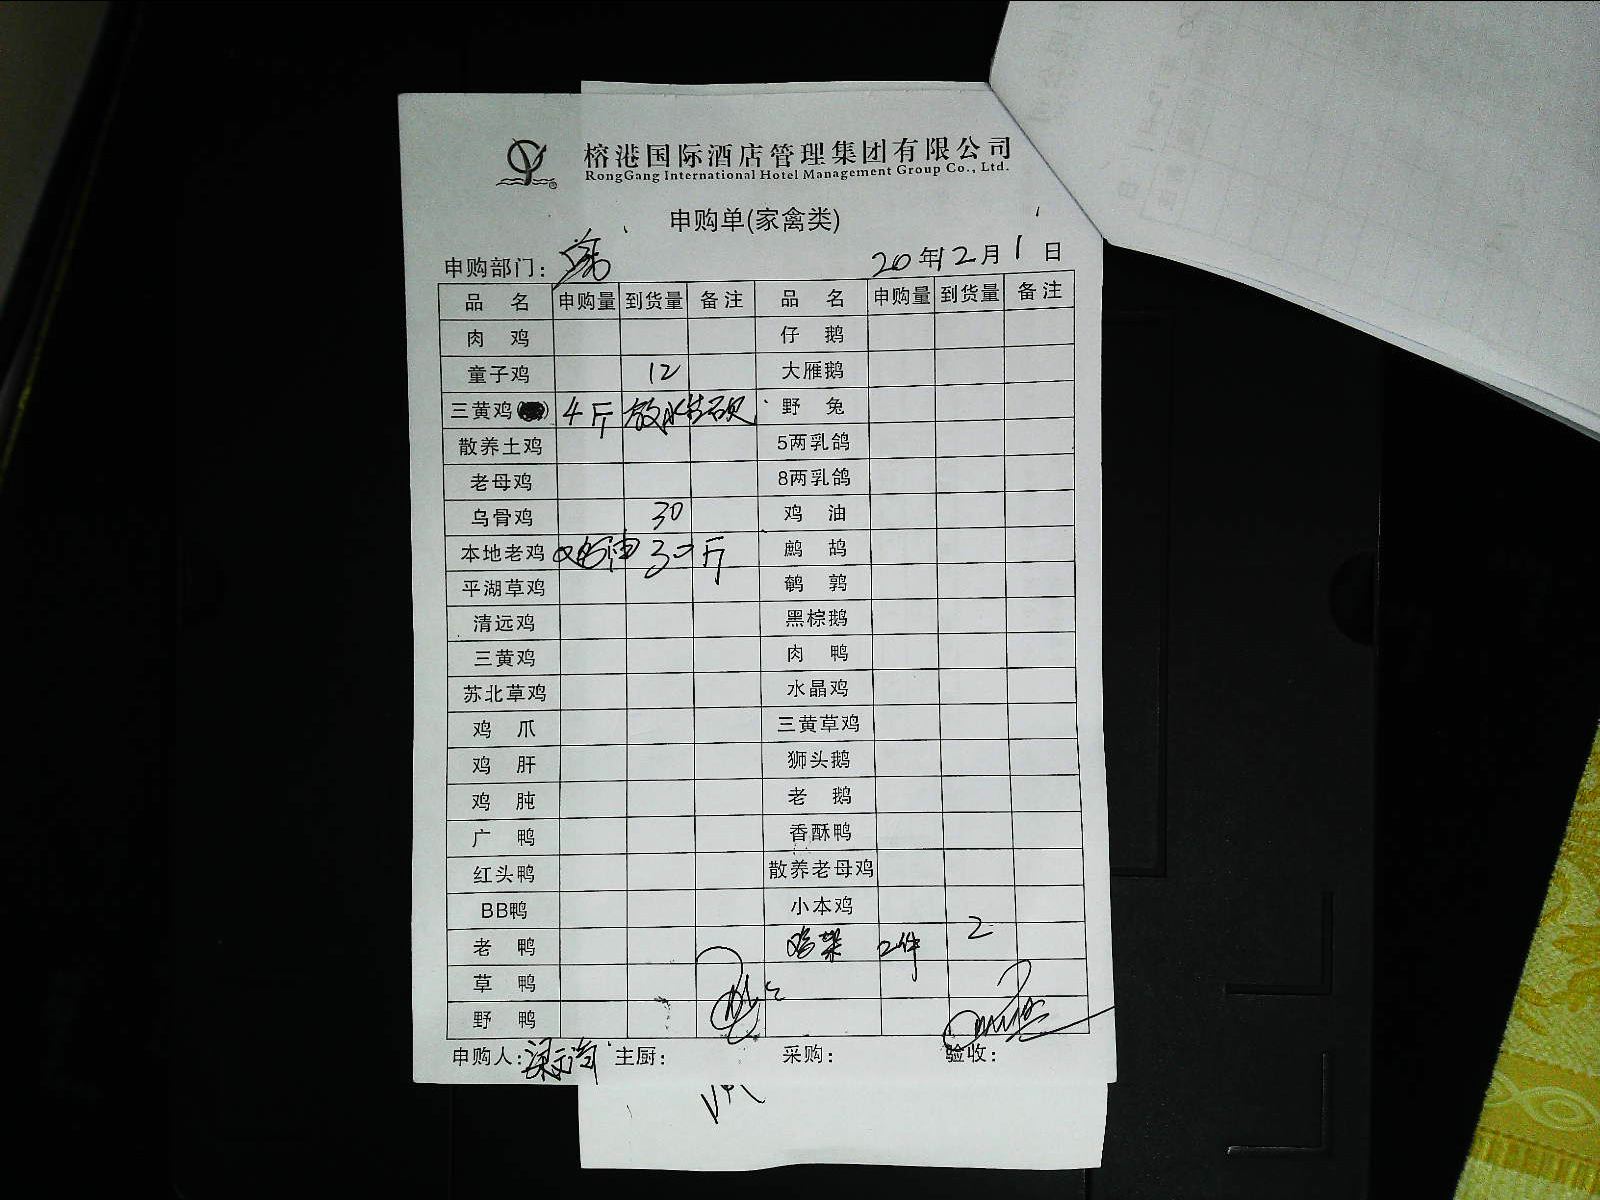 榕港国际酒店管理集团有限公司
RongGang International Hotel Management Group Co., Ltd.
申购单(家禽类)
申购部门:
20年12月1日
品名 申购量 到货量 备注 品名 申购量 到货量 备注
肉鸡 仔鹅
童子鸡 12 大雁鹅
三黄鸡( ) 4斤 放水 野兔
散养土鸡 5两乳鸽
老母鸡 8两乳鸽
乌骨鸡 30 鸡油
本地老鸡 鸡油 30斤 鹧鸪
平湖草鸡 鹌鹑
清远鸡 黑棕鹅
三黄鸡 肉鸭
苏北草鸡 水晶鸡
鸡爪 三黄草鸡
鸡肝 狮头鹅
鸡肫 老鹅
广鸭 香酥鸭
红头鸭 散养老母鸡
BB鸭 小本鸡
老鸭 鸡架 2件 2
草鸭
野鸭
申购人: 主厨: 采购: 验收: